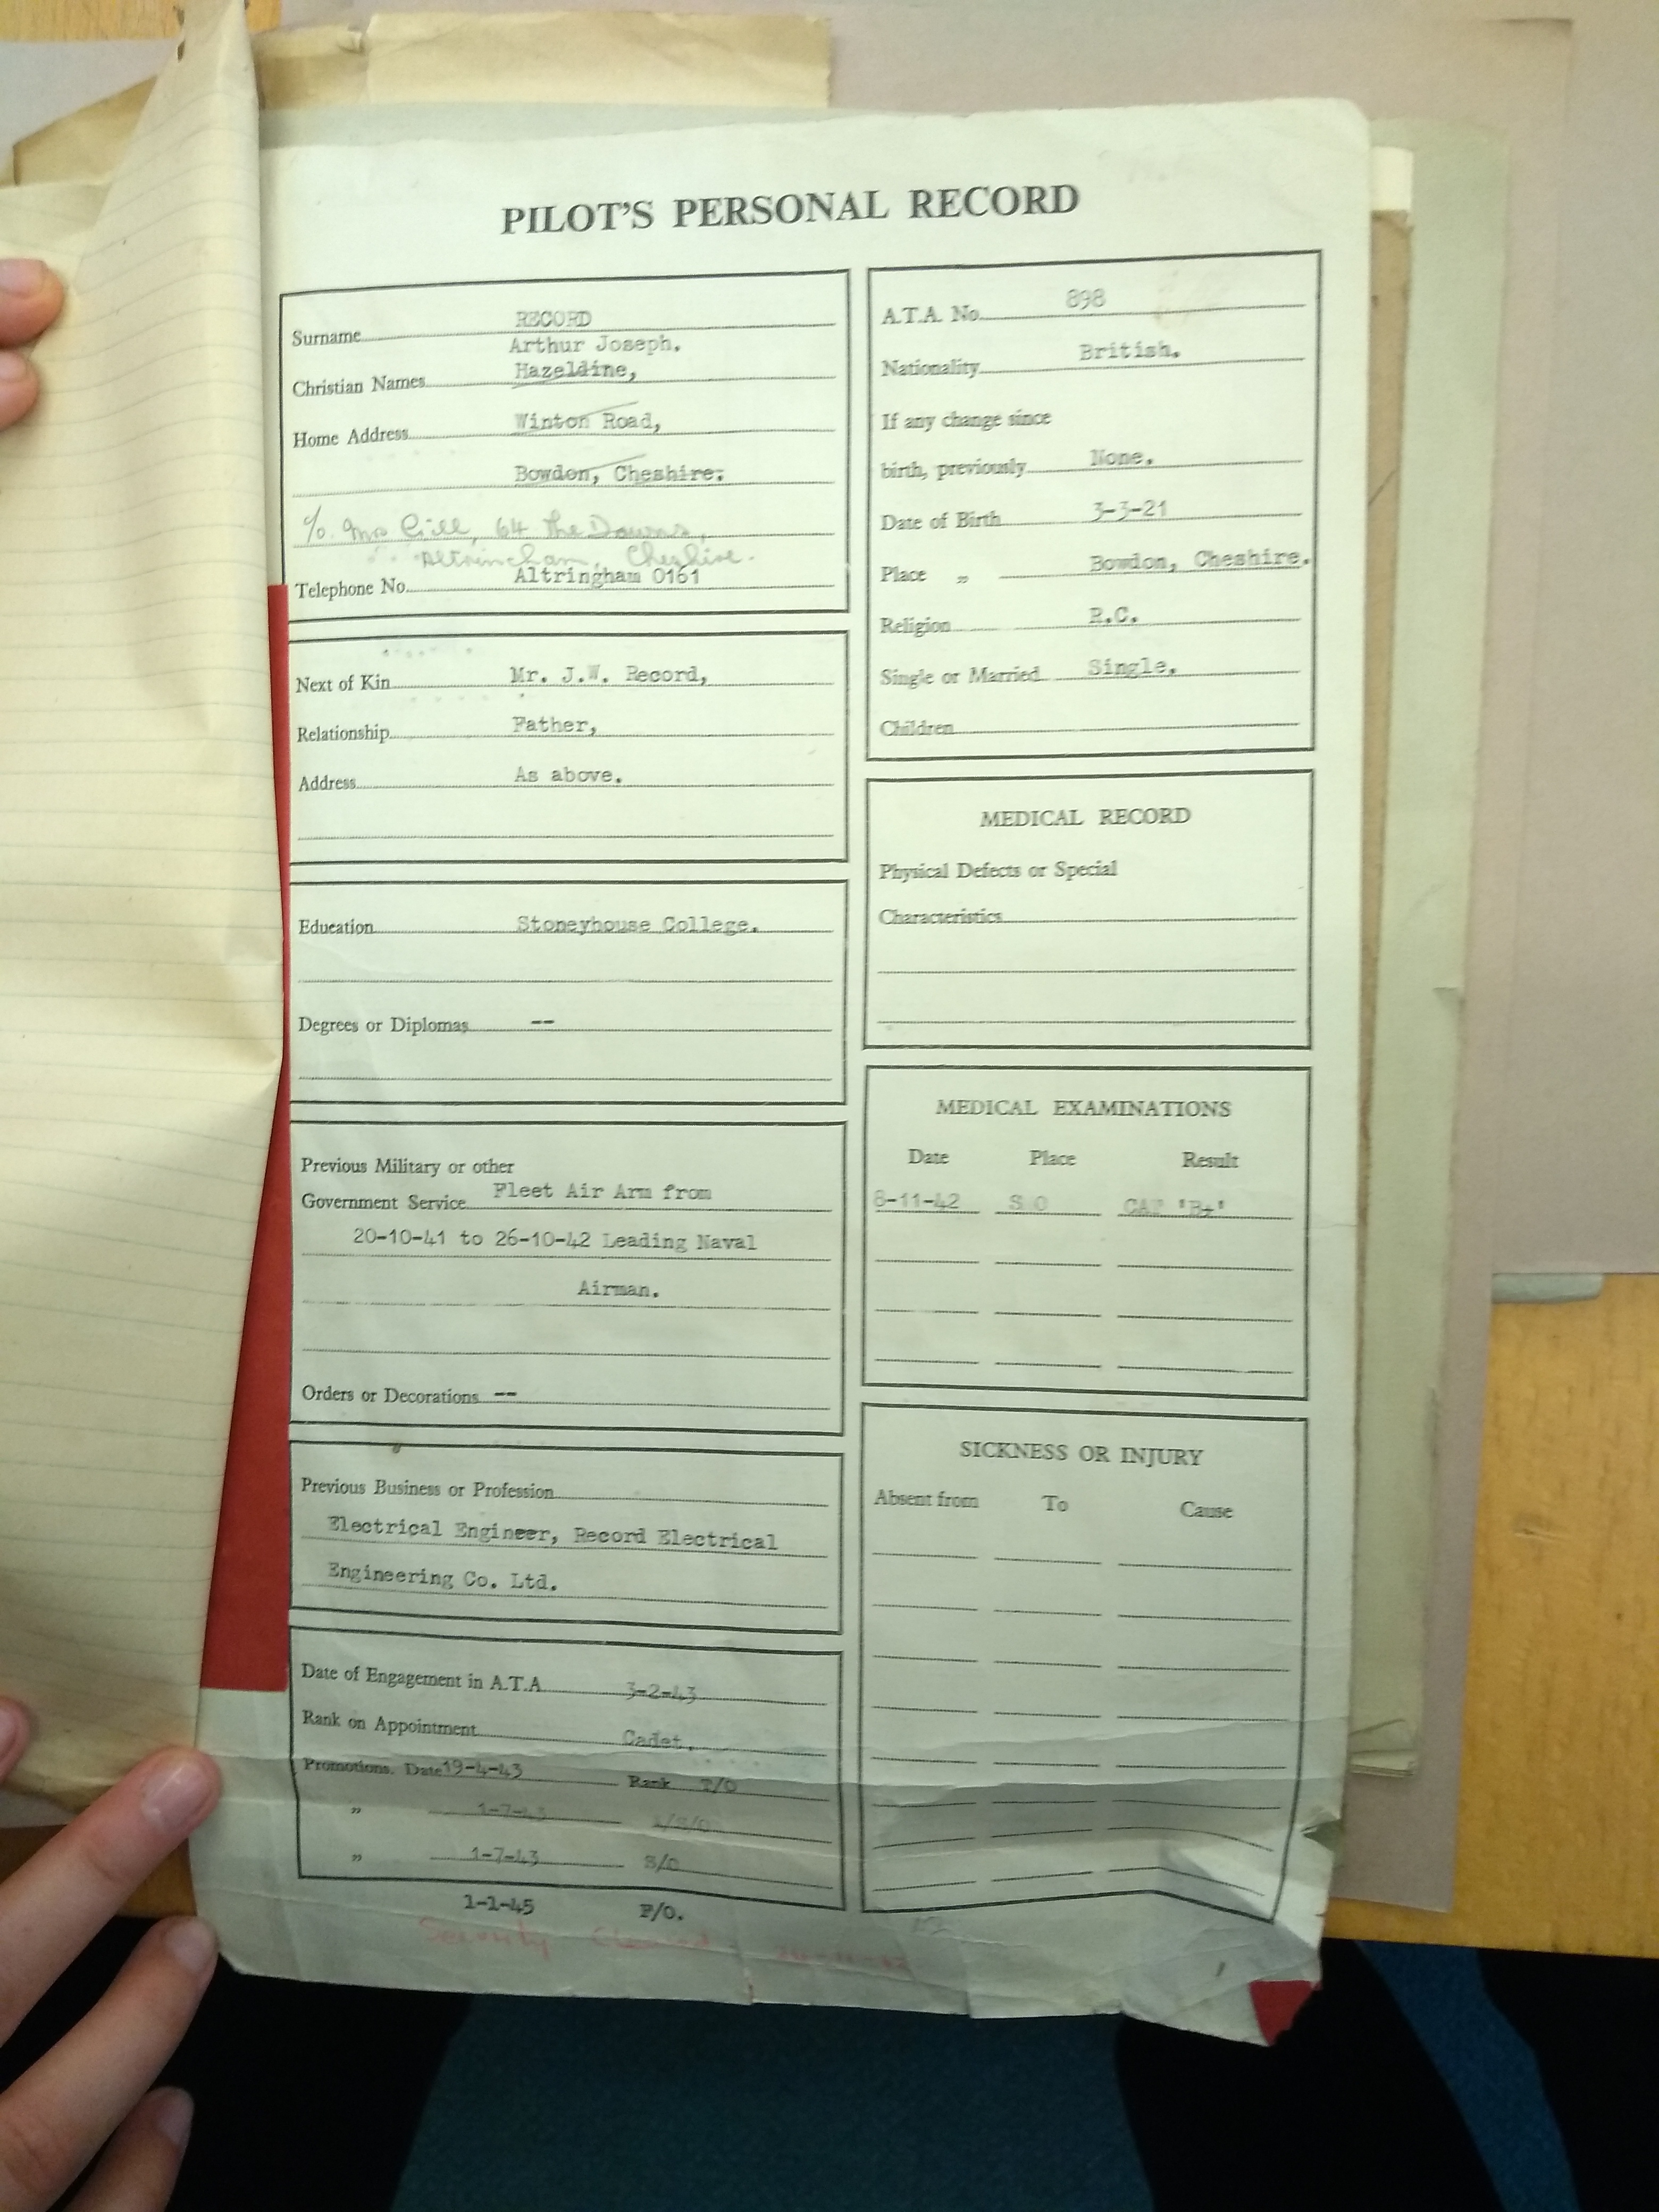 PILOT'S PERSONAL RECORD
Surname RECORD
Arthur Joseph.
Christian Names Hazeldine,
Home Address Winton Road,
Bowdon, Cheshire.
c/o. Mrs Gill, 64 The Downs,
Altrincham, Cheshire.
Telephone No. Altringham 0161
Next of Kin Mr. J.W. Record,
Relationship Father,
Address As above.
Education Stoneyhouse College.
Degrees or Diplomas --
Previous Military or other
Government Service Fleet Air Arm from
20-10-41 to 26-10-42 Leading Naval
Airman.
Orders or Decorations --
Previous Business or Profession
Electrical Engineer, Record Electrical
Engineering Co. Ltd.
Date of Engagement in A.T.A. 3-2-43
Rank on Appointment Cadet.
Promotions. Date 19-4-43 Rank T/O
" 1-7-43
" 1-7-43 S/O
1-1-45 F/O.
Security
A.T.A. No. 898
Nationality British.
If any change since
birth, previously None.
Date of Birth 3-3-21
Place " Bowdon, Cheshire.
Religion R.C.
Single or Married Single.
Children
MEDICAL RECORD
Physical Defects or Special
Characteristics
MEDICAL EXAMINATIONS
Date Place Result
8-11-42 "B+"
SICKNESS OR INJURY
Absent from To Cause